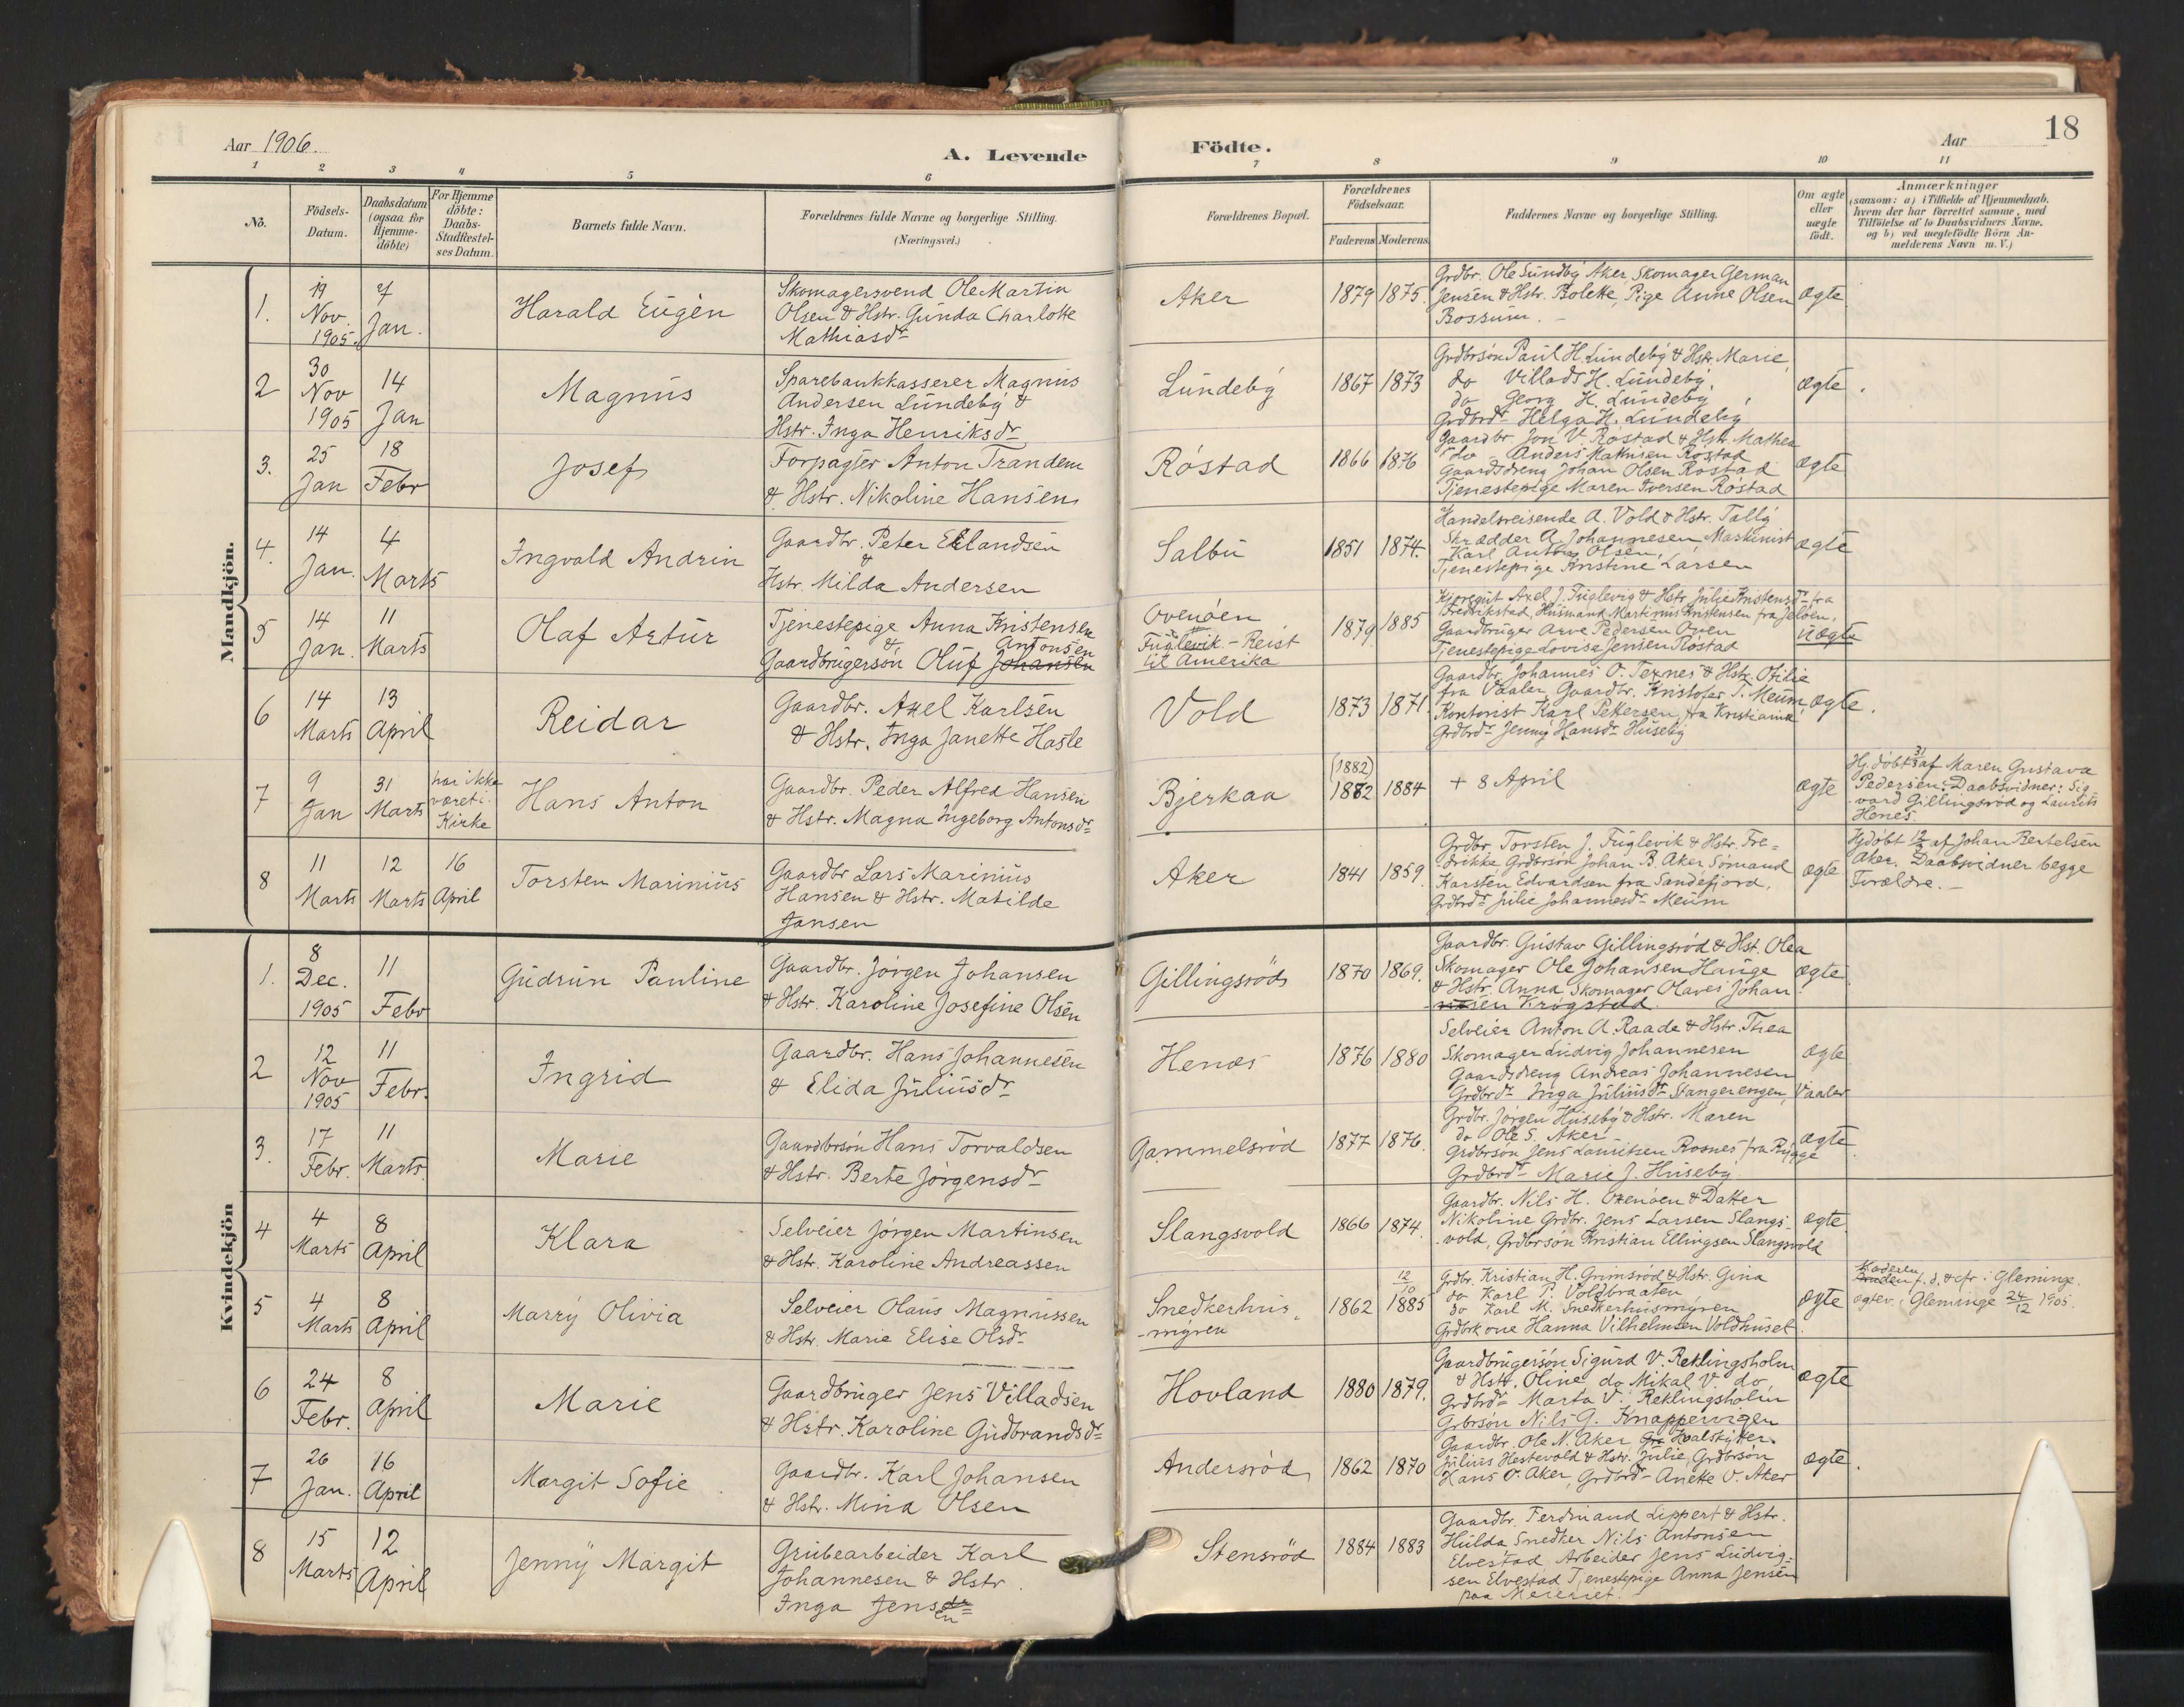 18
Aar 1906.
A. Levende
Födte.
Aar
1 2 3 4 5 6 7 8 9 10 11
No.
Födsels-Datum.
Daabsdatum (ogsaa for Hjemme-döbte)
For Hjemme döbte: Daabs-Stadfæstel-ses Datum.
Barnets fulde Navn.
Forældrenes fulde Navne og borgerlige Stilling.
(Næringsvei.)
Forældrenes Bopæl.
Forældrenes Födselsaar.
Faderens Moderens
Faddernes Navne og borgerlige Stilling.
Om ægte eller uægte födt.
Anmærkninger
(saasom: a) i Tilfælde af Hjemmedaab,
hvem der har forrettet samme, med
Tilföielse af to Daabsvidners Navne.
og b) ved uægtefödte Börn An-
melderens Navn m. V.)
Mandkjön.
1.
19 Nov. 1905.
7 Jan.
Harald Eugèn
Skomagersvend Ole Martin
Olsen & Hstr. Gunda Charlotte
Mathiasdr
Aker
1879 1875.
Grdbr. Ole Sundby Aker, Skomager German
Jensen & Hstr. Bolette, Pige Anne Olsen
Bossum. –
ægte
2
30 Nov 1905
14 Jan
Magnus
Sparebankkasserer Magnus
Andersen Lundeby &
Hstr. Inga Henriksdr
Lundeby
1867 1873
Grdbrsön Paul H. Lundeby & Hstr. Marie,
do Villads H. Lundeby,
do Georg H. Lundeby,
Grdbrdr Helga H. Lundeby
ægte.
3.
25 Jan
18 Febr
Josef
Forpagter Anton Trandem
& Hstr. Nikoline Hansen
Röstad
1866 1876
Gaardbr. Jon V. Röstad & Hstr. Mathea
do – Anders Mathisen Röstad
Gaardsdreng Johan Olsen Röstad
Tjenestepige Maren Iversen Röstad
ægte
4.
14 Jan.
4 Marts
Ingvald Andrin
Gaardbr. Peter Ellandsen
&
Hstr. Milda Andersen
Salbu
1851 1874.
Handelsreisende A. Vold & Hstr. Tally
Skrædder A. Johannesen Maskinist
Karl Anton Olsen,
Tjenestepige Kristine Larsen
ægte
5
14 Jan.
11 Marts
Olaf Artur
Tjenestepige Anna Kristensen
& Antonsen
Gaardbrugersön Oluf Johansen
Ovenöen
Fuglevik – Reist
til Amerika
1879 1885
Kjøregut Axel J. Fuglevig & Hstr Julie Kristensdr fra
Fredrikstad, Husmand Martinus Kristensen fra Jelöen,
Gaardbruger Arve Pedersen Oven
Tjenestepige Lovise Jensen Röstad
uægte
6
14 Marts
13 April
Reidar
Gaardbr. Axel Karlsen
& Hstr. Inga Janette Hasle
Vold
1873 1871.
Gaardbr. Johannes O. Texnes & Hstr. Otilie
fra Vaaler, Gaardbr. Kristofer T. Meum
Kontorist Karl Pettersen, fra Kristiania
Grdbrdr Jenny Hansdr Huseby
ægte.
7
9 Jan
31 Marts
har ikke været i Kirke
Hans Anton
Gaardbr. Peder Alfred Hansen
& Hstr. Magna Ingeborg Antonsdr
Bjerkaa
(1882)
1882 1884
+ 8 April
ægte
Hj.döbt 31/3 af Maren Gustava
Pedersen. Daabsvidner: Sig-
vard Gillingsröd og Laurits
Henes.
8
11 Marts
12 Marts
16 April
Torsten Marinius
Gaardbr Lars Marinius
Hansen & Hstr. Matilde
Jansen
Aker
1841 1859.
Grdbr. Torsten J. Fuglevik & Hstr. Fre-
drikke Grdbrsön Johan B. Aker Sömand
Karsten Edvardsen fra Sandefjord,
Grdbrdr Julie Johannesdr Meum
ægte
Hjdöbt 12/3 af Johan Bertelsen
Aker. Daabsvidner begge
Forældre. –
Kvindekjön
1.
8 Dec. 1905
11 Febr
Gudrun Pauline
Gaardbr. Jörgen Johansen
& Hstr. Karoline Josefine Olsen
Gillingsröd
1870 1869.
Gaardbr. Gustav Gillingsröd & Hst. Olea
Skomager Ole Johansen Hauge
& Hstr. Anna Skomager Olaves Johan
sen Krogstad.
ægte.
2
12 Nov 1905
11 Febr.
Ingrid
Gaardbr. Hans Johannesen
& Elida Juliusdr
Henæs
1876 1880
Selveier Anton A. Raade & Hstr. Thea
Skomager Ludvig Johannesen
Gaardsdreng Andreas Johannesen
Grdbrdr Inga Juliusdr Stangerengen, Vaaler
ægte
3.
17 Febr.
11 Marts.
Marie
Gaardbrsön Hans Torvaldsen
& Hstr. Berte Jörgensdr
Gammelsröd
1877 1876.
Grdbr. Jörgen Huseby & Hstr. Maren
do Ole S. Aker
Grdbrsön Jens Lauritsen Rosnes fra Rygge
Grdbrdr Marie J. Huseby
ægte.
4
4 Marts
8 April
Klara
Selveier Jörgen Martinsen
& Hstr. Karoline Andreassen
Slangsvold
1866 1874.
Gaardbr. Nils H. Oxenöen & Datter
Nikoline Grdbr. Jens Larsen Slangs-
vold, Grdbrsön Kristian Ellingsen Slangsvold
ægte.
5
4 Marts
8 April
Marry Olivia
Selveier Olaus Magnussen
& Hstr. Marie Elise Olsdr
Snedkerhus-
myren
1862 12/10 1885
Grdbr. Kristian H. Grimsröd & Hstr. Gina
do Karl P. Voldbraaten
do Karl M. Snedkerhusmyren
Grdbrkone Hanna Vilhelmsen Voldhuset.
ægte
Moderen f. d. & cfr. i Glemminge.
ægtev. i Gleminge 24/12 1905.
6
24 Febr.
8 April
Marie
Gaardbruger Jens Villadsen
& Hstr. Karoline Gudbrandsdr
Hovland
1880 1879.
Gaardbrugersön Sigurd V. Reklingsholm
& Hstr. Oline do Mikal V do
Grdbrdr Marta V. Reklingsholm
Grbrsön Nils G. Knappervigen
ægte
7
26 Jan.
16 April
Margit Sofie
Gaardbr. Karl Johansen
& Hstr. Mina Olsen
Andersröd
1862 1870
Gaardbr. Ole N. Aker Hvalskytter
Julius Hestevold & Hstr. Julie, Grdbrsön
Hans O. Aker, Grdbrdr Anette O. Aker
ægte.
8
15 Marts
12 April
Jenny Margit
Grubearbeider Karl
Johannesen & Hstr.
Inga Jensdr en
Stensröd
1884 1883
Gaardbr. Ferdinand Lippert & Hstr.
Hulda Snedker Nils Antonsen
Elvestad Arbeider Jens Ludvig-
sen Elvestad Tjenestepige Anna Jensen
paa Meieriet.